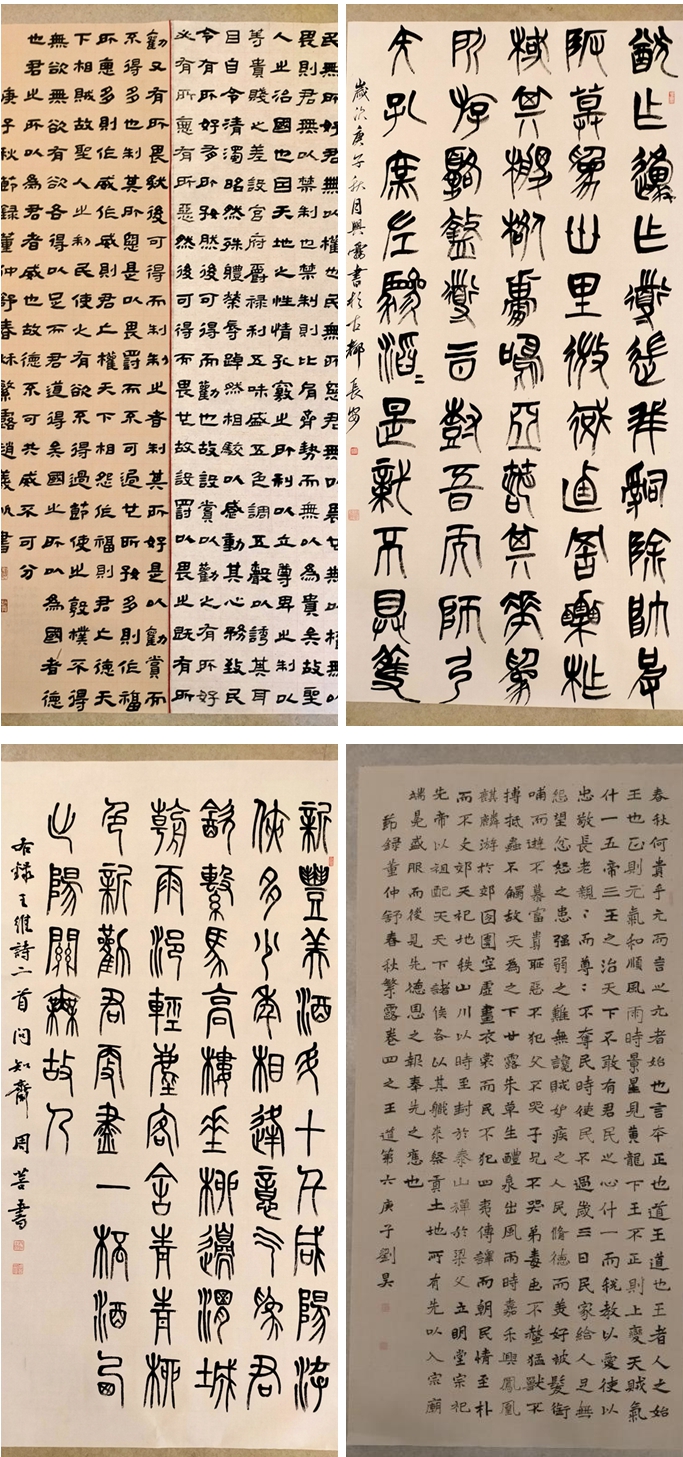 民無所好君無以權也民無所惡君無以畏也無以權無以
畏則君無以禁制也禁制則比肩齊勢而無以為貴矣故聖
人之治國也因天地之性情孔竅之所利以立尊卑之制以
等貴賤之差設官府爵祿利五味盛五色調五聲以誘其耳
目自令清濁昭然殊體榮辱踔然相駮以感動其心務致民
令有所好有所好然後可得而勸也故設賞以勸之有所好
必有所惡有所惡然後可得而畏也故設罰以畏之既有所
勸又有所畏然後可得而制制之者制其所好是以勸賞而
不得多也制其所惡是以畏罰而不可過也所好多則作福
所惡多則作威作威則君亡權天下相怨作福則君亡德天
下相賊故聖人之制民使之有欲不得過節使之敦樸不得
無欲無欲有欲各得以足而君道得矣國之所以為國者德
也君之所以為君者威也故德不可共威不可分
庚子秋節録董仲舒春秋繁露趙義帆書
猷乍邍乍導遄我嗣除帥
阪為卅里微罟栗柞
棫其鳴亞箬其華為
所斿導二日尌吾而師弓
矢孔庶左驂滔滔是不具
歲次庚子秋月興露書於古都長安
新豐美酒斗十千咸陽游
俠多少年相逢意气為君
飲繫馬高樓垂柳邊渭城
朝雨浥輕塵客舍青青柳
色新勸君更盡一桮酒西
出陽關無故人
右録王維詩二首問知齋周菩書
春秋何貴乎元而言之元者始也言本正也道王道也王者人之始
王也正則元氣和順風雨時景星見黃龍下王不正則上變天賊氣
什一五帝三王之治天下不敢有君民之心什一而稅教以愛使以
忠敬長老親:而尊:不奪民時使民不過歲三日民家給人足無
怨望忿怒之患强弱之難無讒賊妒疾之人民脩德而美好被髮銜
哺而遊不慕富貴恥惡不犯父不哭子兄不哭弟毒虫不螫猛獸不
搏抵蟲不觸故天為之下甘露朱草生醴泉出風雨時嘉禾興鳳凰
麒麟游於郊囹圄空虛畫衣裳而民不犯四夷傳譯而朝民情至朴
而不文郊天祀地秩山川以時至封於泰山禪於梁父立明堂宗祀
先帝以祖配天天下諸侯各以其職來祭貢土地所有先以入宗廟
端冕盛服而後見先德恩之報奉先之應也
節録董仲舒春秋繁露卷四之王道第六庚子劉昊